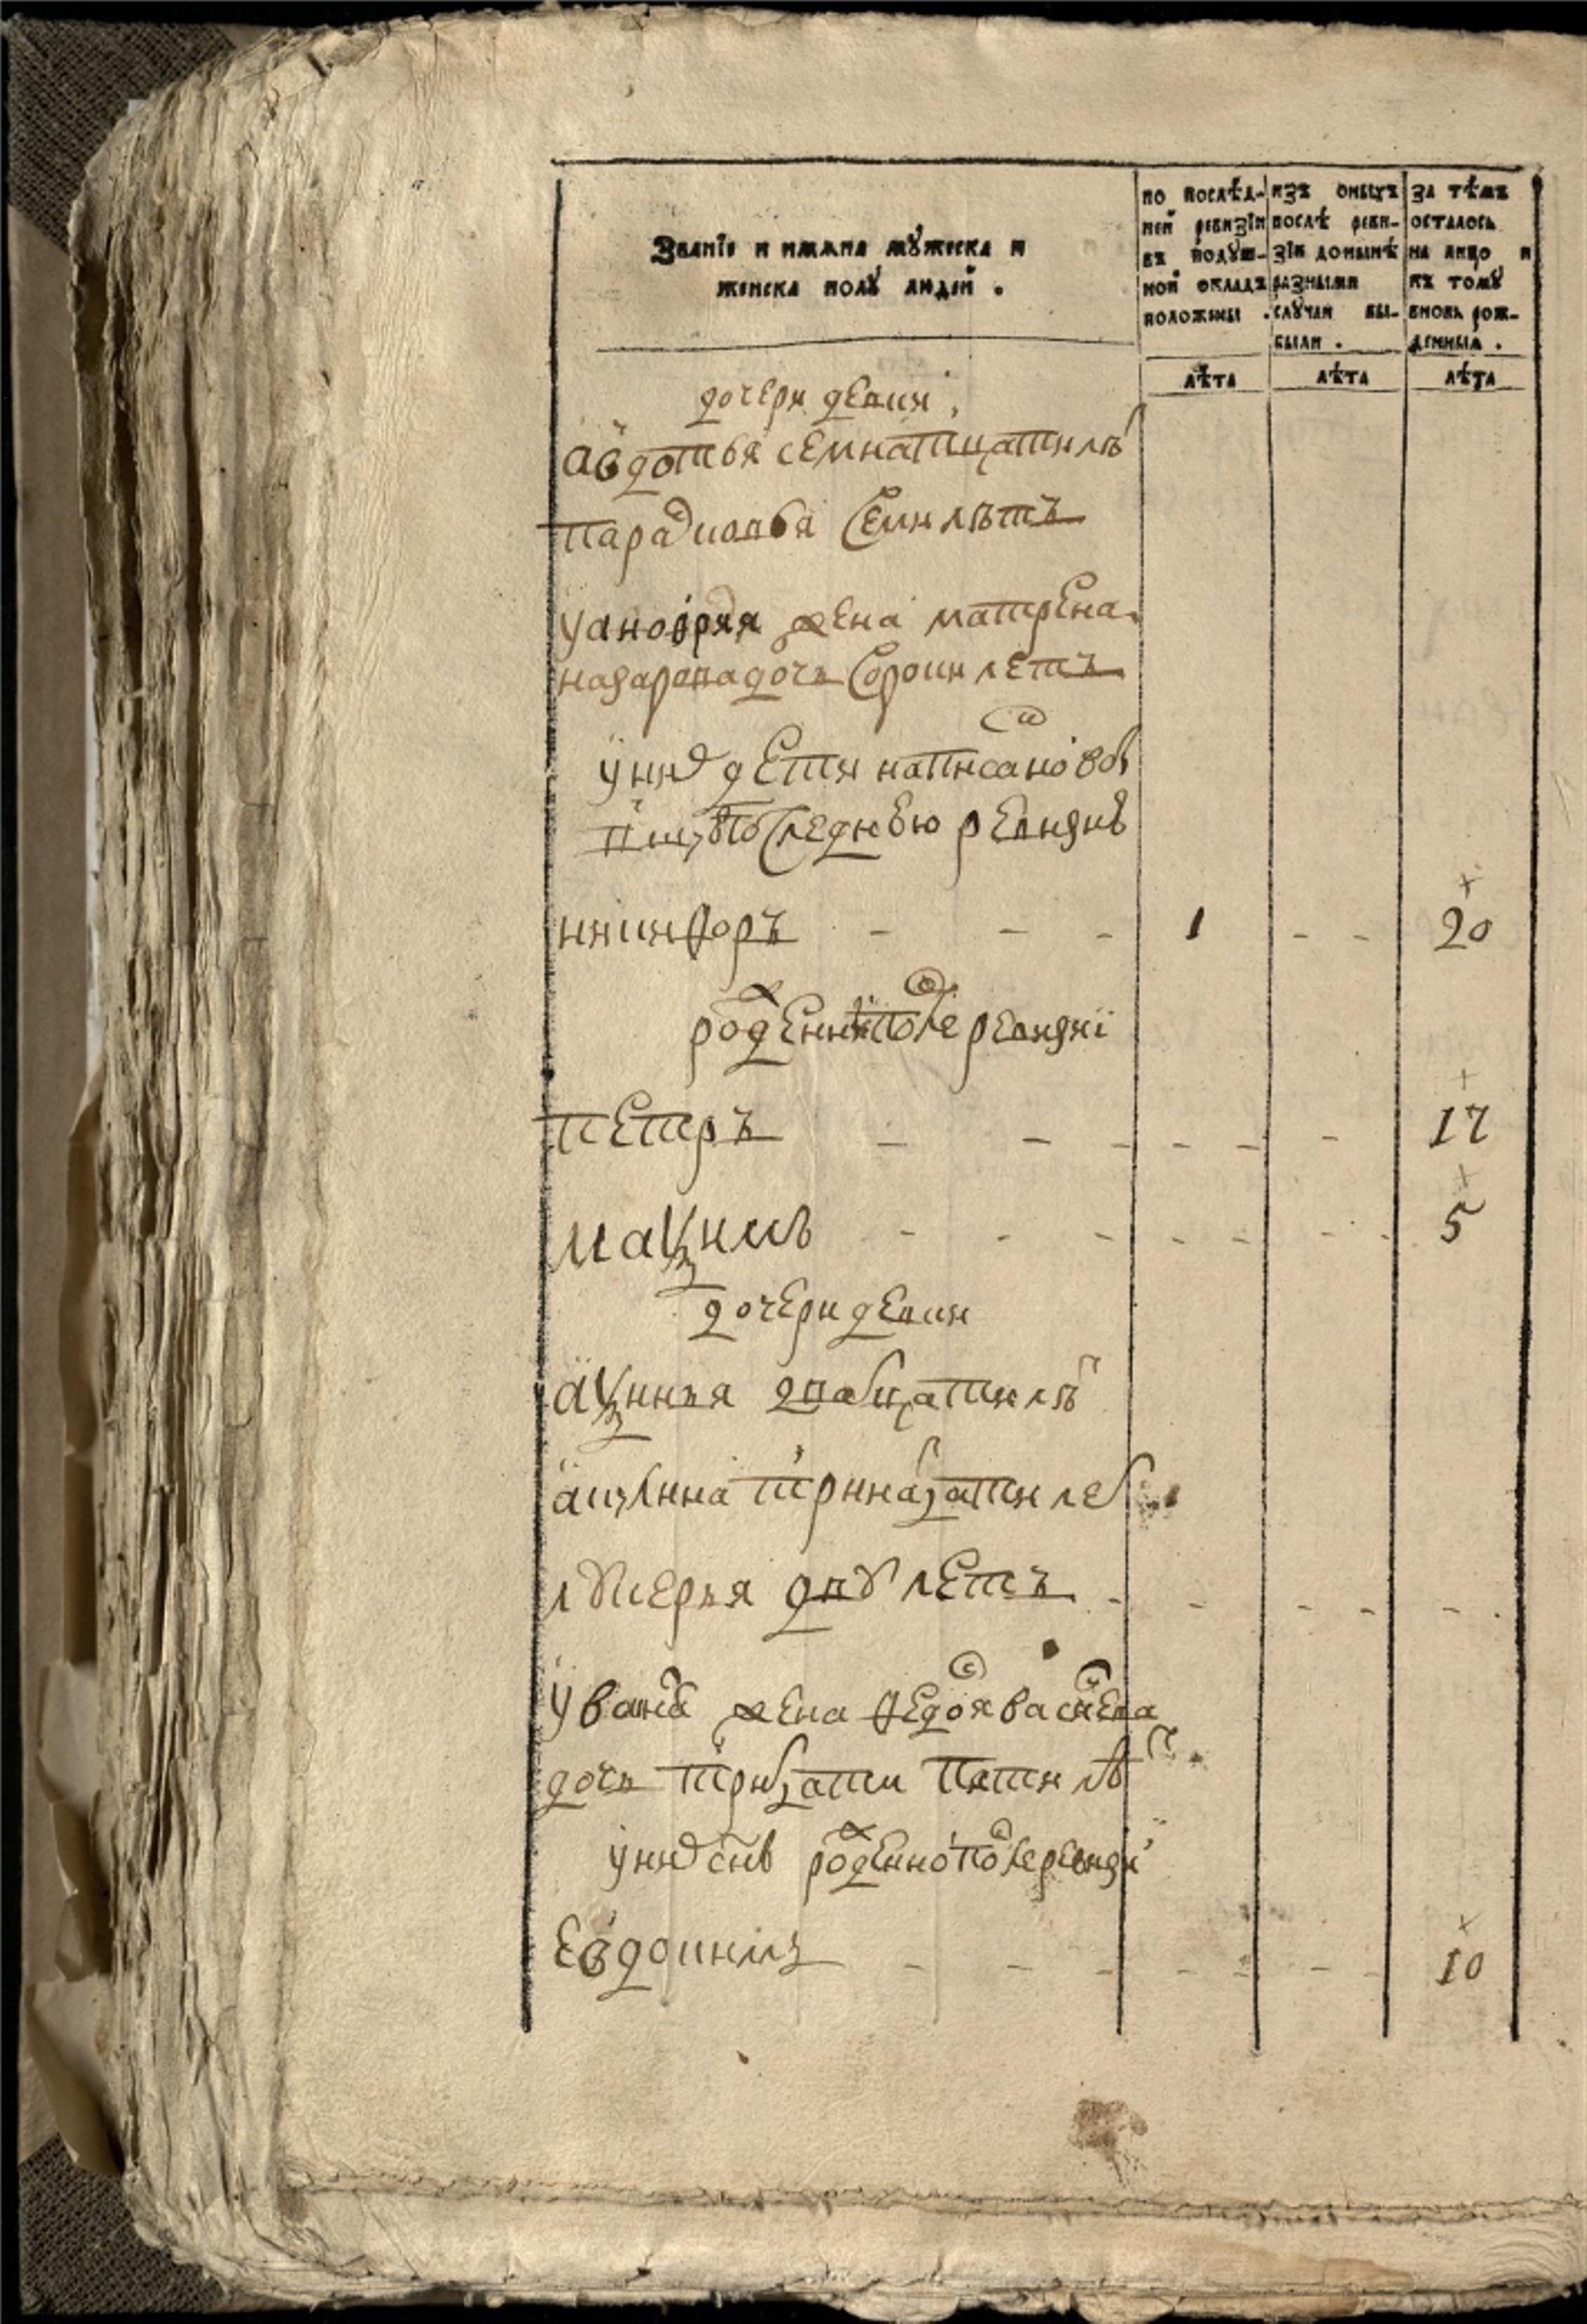 Званїе и имяна мꙋжеска и
женска полꙋ людей .
по послѣд-
ней ревизїи
въ подꙋш-
ной окладъ
положены .
изъ оныхъ
послѣ реви-
зїи донынѣ
разными
слꙋчаи вы-
были .
за тѣмъ
осталось
на лицо и
къ томꙋ
вновь рож-
денныя .
лѣта
лѣта
лѣта
дочери девки
авдотья семнатцати лѣ
парасковья семи лѣтъ
жена матрена
назарова дочь сороки летъ
у них дети написано
последнею ревизию
никифоръ - - - 1 - - 20
рожденни после ревизиї
петръ - - - - - - 17
мазимъ - - - - - - - 5
дочери девки
азинья двацати лѣ
аззинна тринатцати лет
лукерья двух летъ - - - - - .
у вана жена федося васильева
дочь тритцати пяти лѣт
у них сынъ рожденно после ревизи
Евдокимъ - - - - - - - 10